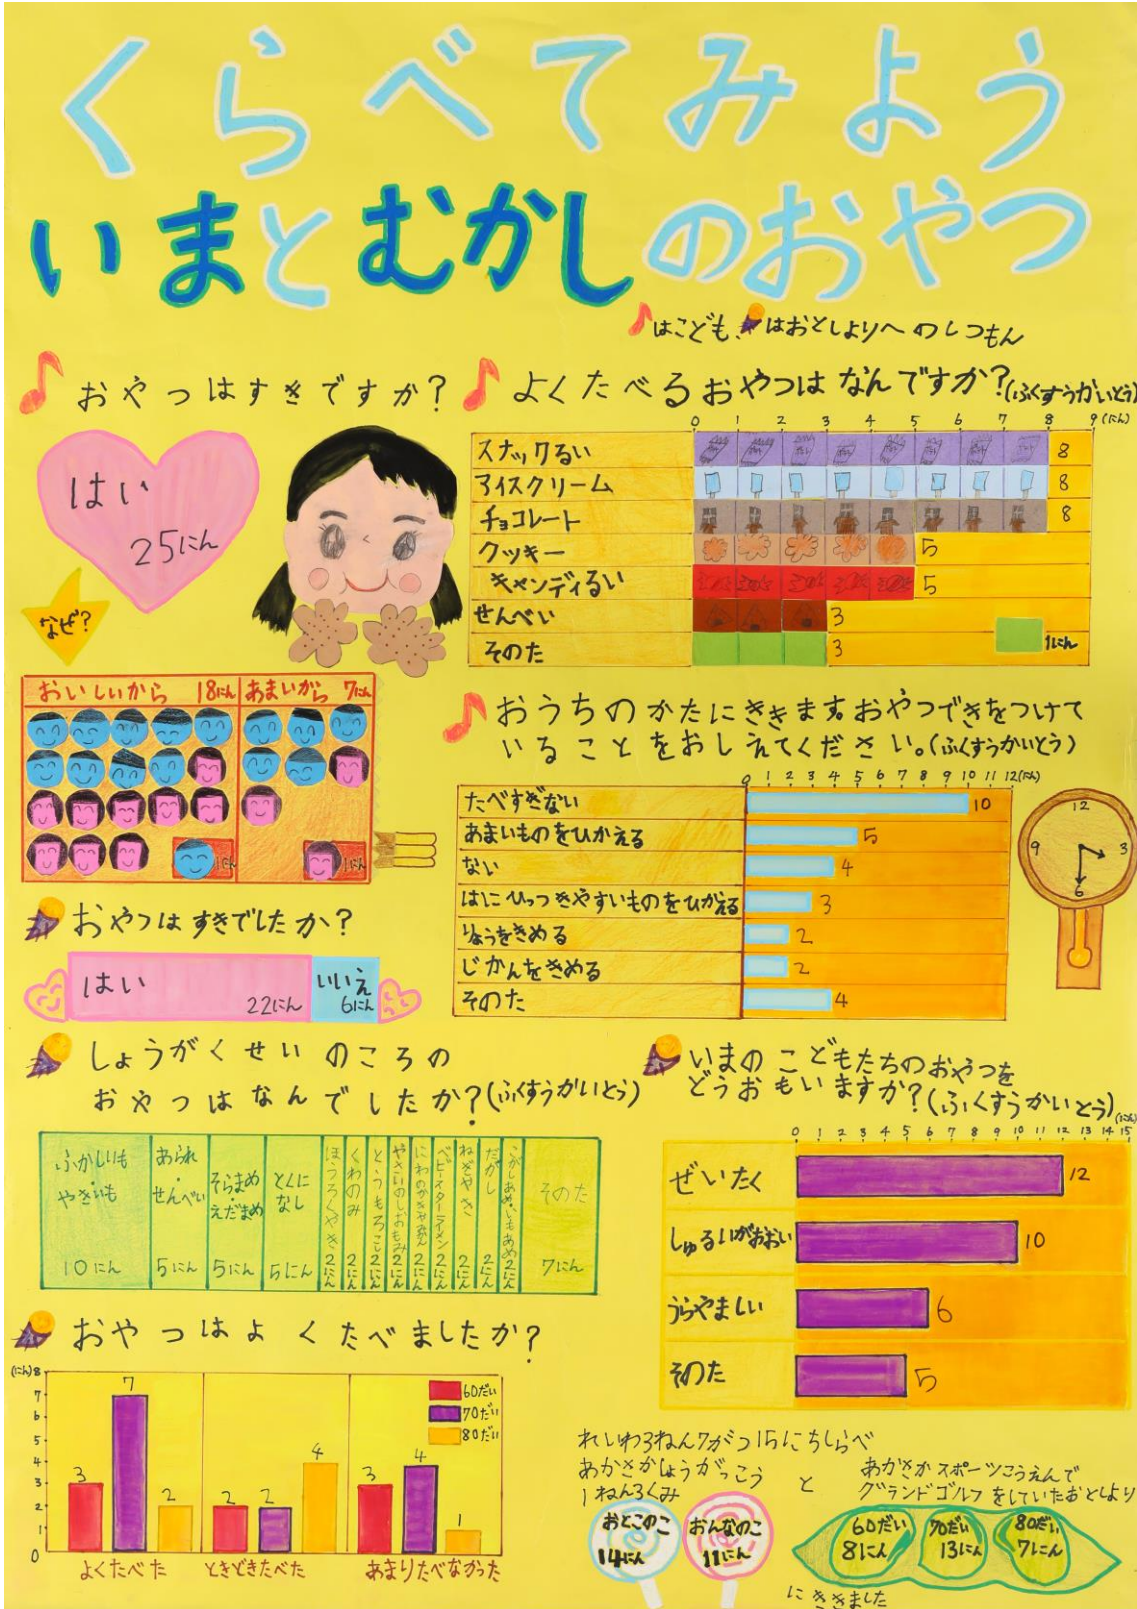 くらべてみよう
いまとむかしのおやつ
はこども、はおとしよりへのしつもん
おやつはすきですか?
はい
25にん
なぜ?
おいしいから 18にん
あまいから 7にん
1にん
1にん
よくたべるおやつはなんですか?(ふくすうかいとう)
0 1 2 3 4 5 6 7 8 9(にん)
スナックるい 8
アイスクリーム 8
チョコレート 8
クッキー 5
キャンディるい 5
せんべい 3
そのた 3
1にん
おうちのかたにききます。おやつできをつけて
いることをおしえてください。(ふくすうかいとう)
0 1 2 3 4 5 6 7 8 9 10 11 12(にん)
たべすぎない 10
あまいものをひかえる 5
ない 4
はにひっつきやすいものをひかえる 3
りょうをきめる 2
じかんをきめる 2
そのた 4
12
3
6
9
おやつはすきでしたか?
はい
22にん
いいえ
6にん
しょうがくせいのころの
おやつはなんでしたか?(ふくすうかいとう)
ふかしいも・やきいも 10にん
あられ・せんべい 5にん
そらまめ・えだまめ 5にん
とくになし 5にん
ほうろくやき 2にん
くわのみ 2にん
とうもろこし 2にん
やさいのしおもみ 2にん
にわのかきやみかん 2にん
ベビースターラーメン 2にん
ねぎやき 2にん
だがし 2にん
こがしあめ・いもあめ 2にん
そのた 7にん
いまのこどもたちのおやつを
どうおもいますか?(ふくすうかいとう)
(にん)
0 1 2 3 4 5 6 7 8 9 10 11 12 13 14 15
ぜいたく 12
しゅるいがおおい 10
うらやましい 6
そのた 5
おやつはよくたべましたか?
(にん)
8
7
6
5
4
3
2
1
0
60だい
70だい
80だい
3 7 2
2 2 4
3 4 1
よくたべた
ときどきたべた
あまりたべなかった
れいわ3ねん7がつ15にちしらべ
あかさかしょうがっこう
1ねん3くみ
おとこのこ
14にん
おんなのこ
11にん
と
あかさかスポーツこうえんで
グランドゴルフをしていたおとしより
60だい
8にん
70だい
13にん
80だい
7にん
にききました